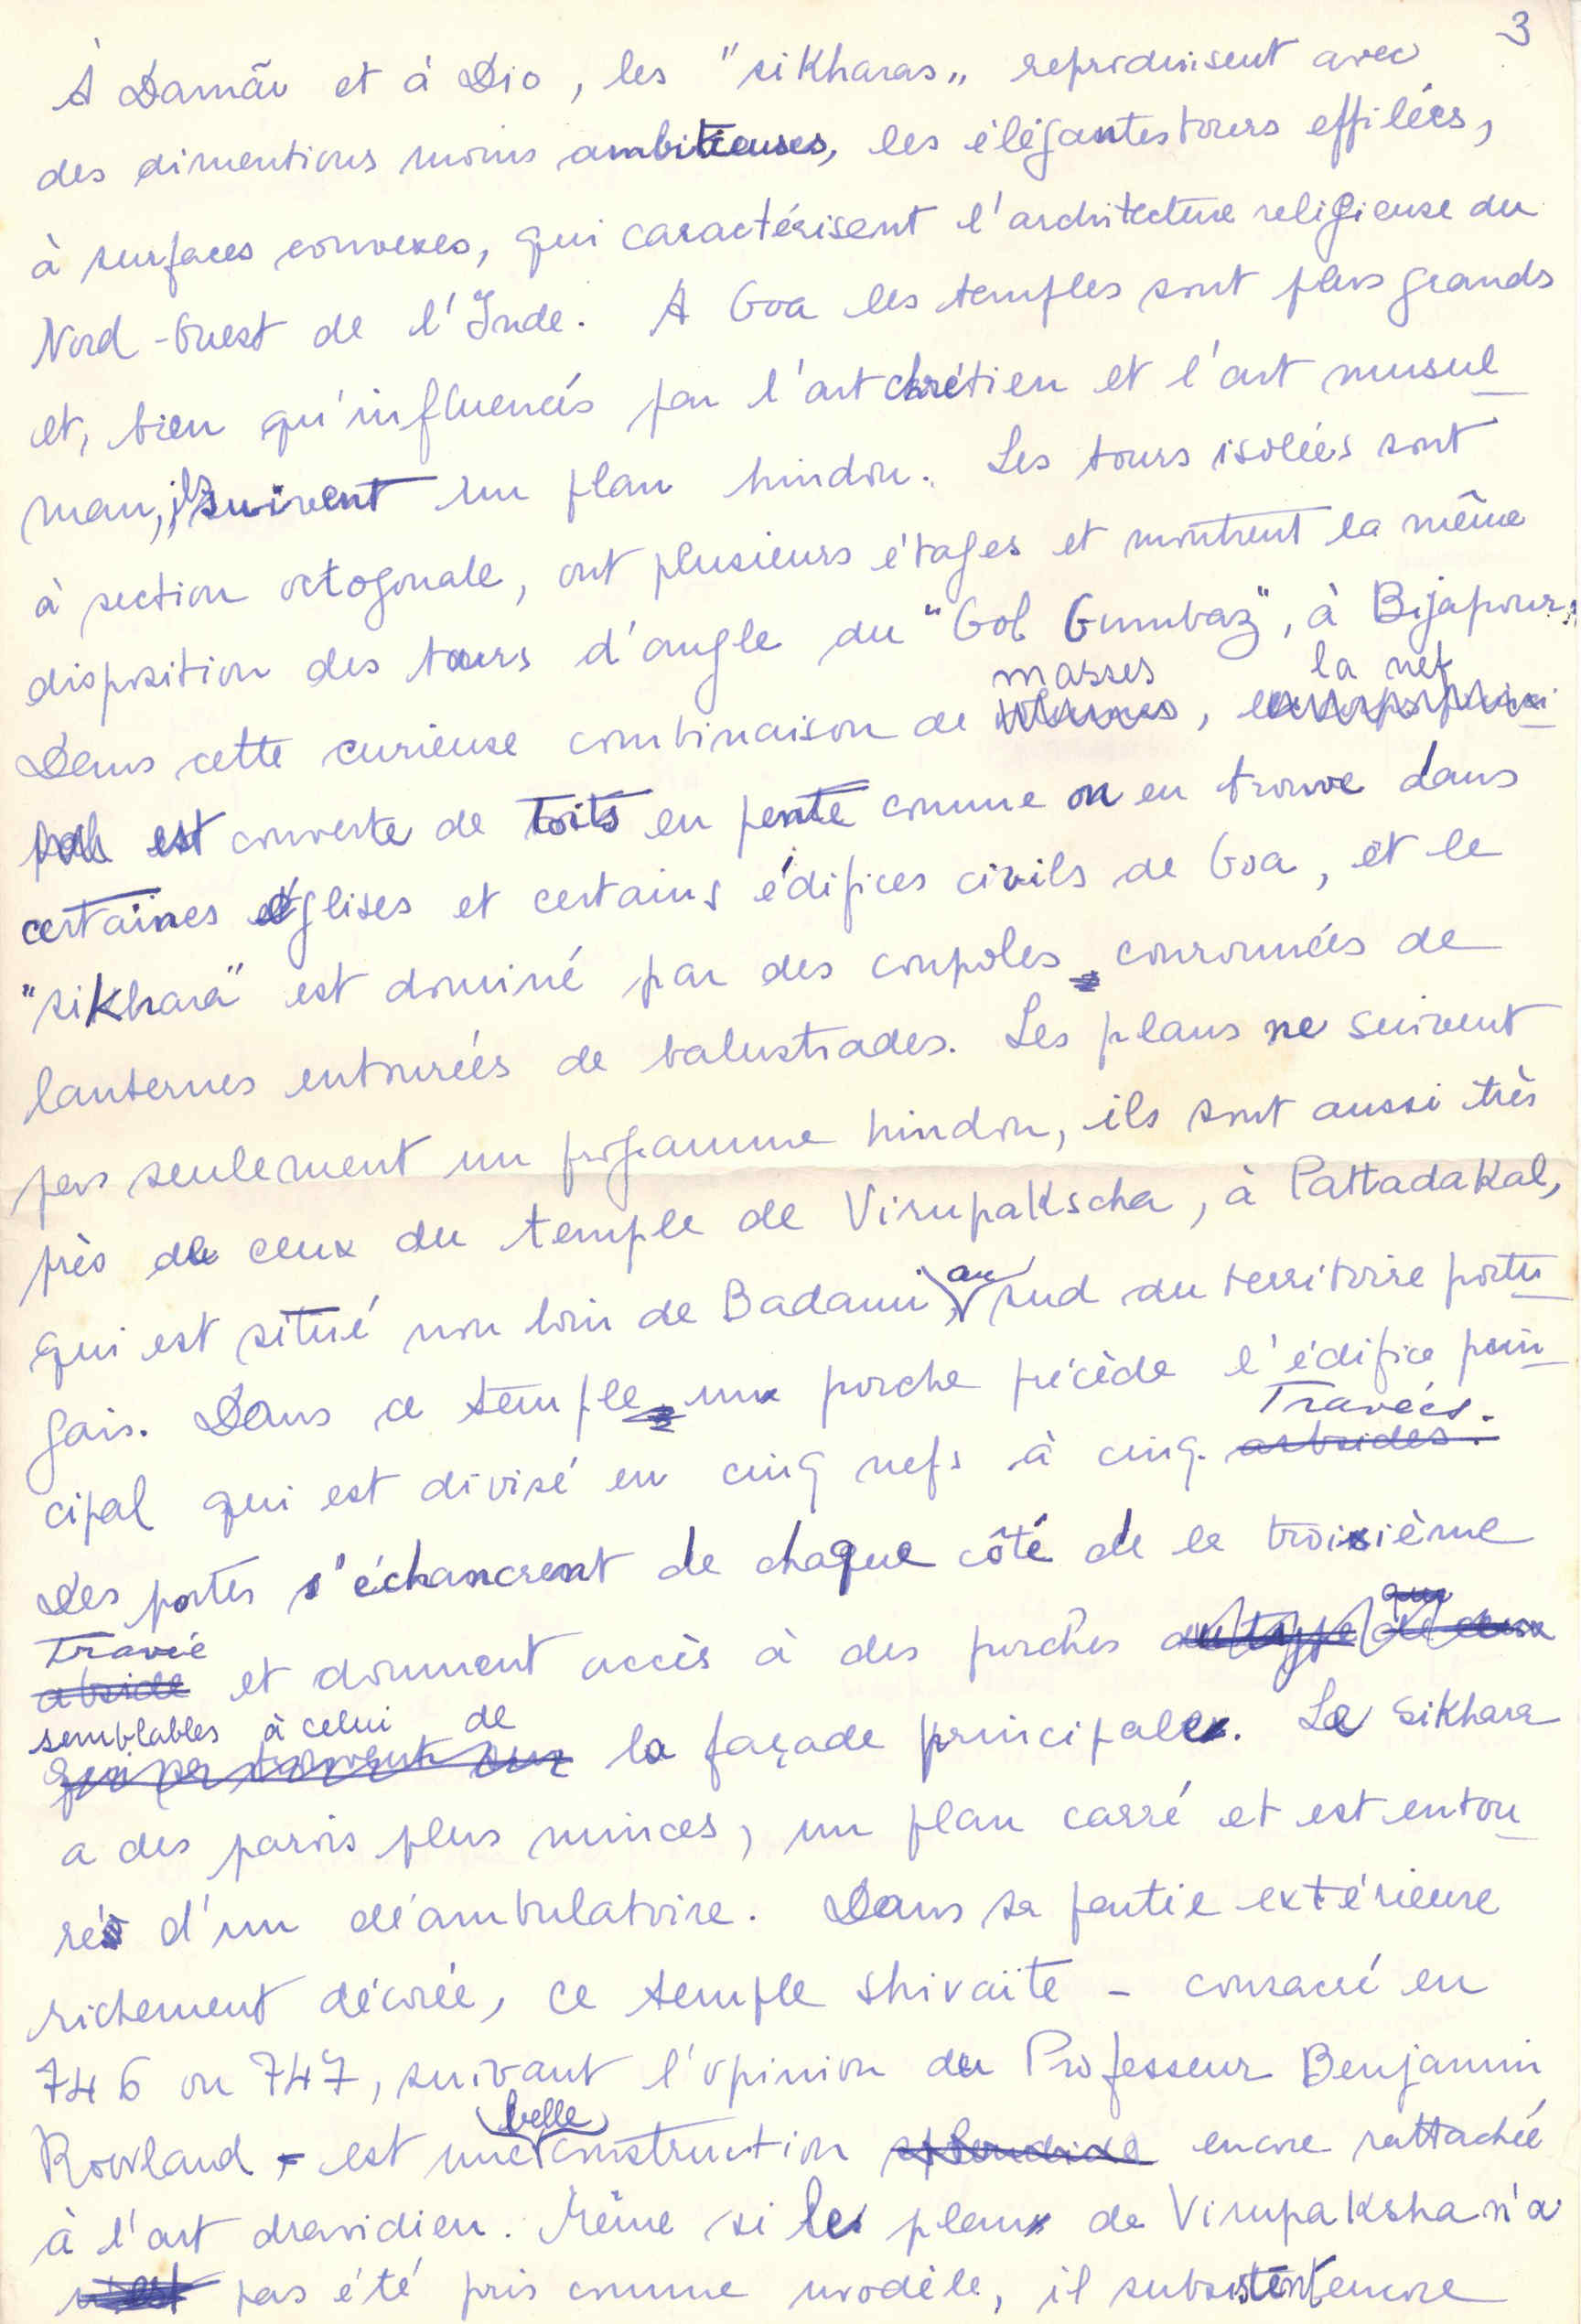 3
À Damão et à Dio, les "sikharas" reproduisent avec
des dimentions moins ambitieuses, les élégantes tours effilées,
à surfaces convexes, qui caractérisent l'architecture religieuse du
Nord-Ouest de l'Inde. A Goa les temples sont plus grands
et, bien qu'influencés par l'art chrétien et l'art musul-
man, ils suivent un plan hindou. Les tours isolées sont
à section octogonale, ont plusieurs étages et montrent la même
disposition des tours d'angle du "Gol Gumbaz", à Bijapour.
masses la nef
Dans cette curieuse combinaison de ,
est couverte de toits en pente comme on en trouve dans
certaines églises et certains édifices civils de Goa, et le
"sikhara" est dominé par des coupoles couronnées de
lanternes entourées de balustrades. Les plans ne suivent
pas seulement un programme hindou, ils sont aussi très
près de ceux du temple de Virupakscha, à Pattadakal,
qui est situé non loin de Badami, au sud du territoire portu-
gais. Dans ce temple un porche précède l'édifice prin-
Travées.
cipal qui est divisé en cinq nefs à cinq absides.
Des portes s'échancrent de chaque côté de la troisième
Travée
abside et donnent accès à des porches du type de ceux que
semblables à celui de
qui se trouvent sur la façade principale. Le sikhara
a des parois plus minces, un plan carré et est entou-
ré d'un déambulatoire. Dans sa partie extérieure
richement décorée, ce temple shivaïte - consacré en
746 ou 747, suivant l'opinion du Professeur Benjamin
Rowland - est une belle construction splendide encore rattachée
à l'art dravidien. Même si le plan de Virupaksha n'a
n'est pas été pris comme modèle, il subsistent encore